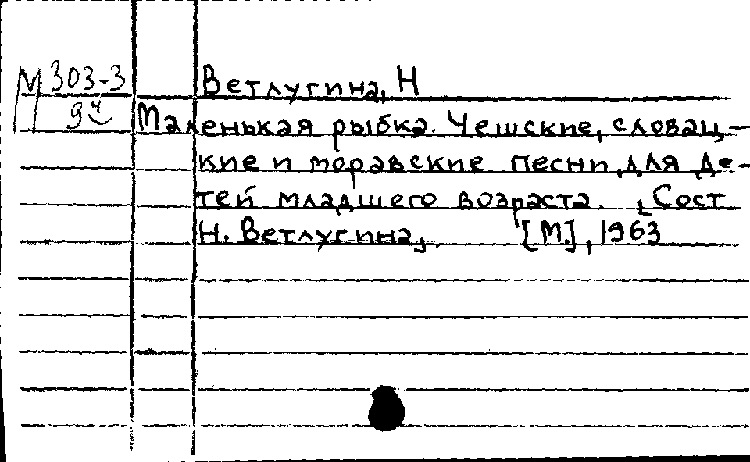 М 303-3 Ветлугина, Н
9ч Маленькая рыбка. Чешские, словац-
кие и моравские песни для де-
тей младшего возраста. [Сост
Н. Ветлугина]. [М.], 1963